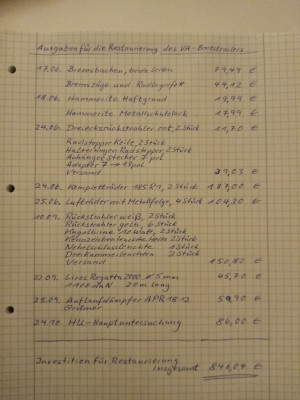 Ausgaben für die Restaurierung des VA-Bootstrailers
17.06. Bremsbacken, beide Seiten 79,49 €
Bremszüge und Radlagerfett 44,12 €
18.06. Hammerite Haftgrund 19,99 €
Hammerite Metallschutzlack 17,99 €
24.06. Dreiecksrückstrahler rot, 2 Stück 11,70 €
Radstopper Keile, 2 Stück
Halterungen Radstopper, 2 Stück
Anhänger Stecker 7 pol
Adapter 7 → 13 pol
Versand 39,03 €
24.06. Kompletträder 185R14, 2 Stück 187,00 €
25.06. Lufträder mit Metallfelge, 4 Stück 104,30 €
10.09. Rückstrahler weiß, 2 Stück
Rückstrahler gelb, 6 Stück
Kugelbirne 10 Watt, 2 Stück
Kennzeichenleuchte, 2 Stück
Nebelschlußleuchte 1 Stück
Dreikammerleuchten 2 Stück
Versand 150,82 €
22.09. Liros Regatta 2000 ⌀ 5 mm 45,70 €
1100 daN 20 m lang
25.09. Auflaufdämpfer APR 18 12 59,90 €
24.10. HU-Hauptuntersuchung 86,00 €
Investition für Restaurierung
insgesamt 846,04 €